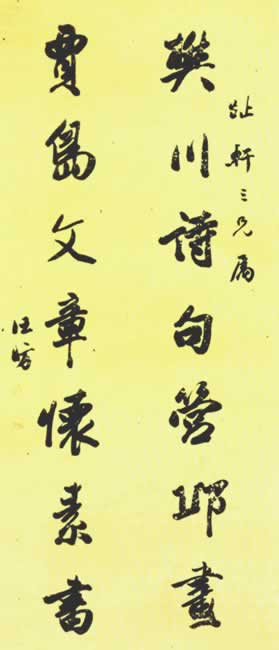 軒三兄屬
樊川詩句營邱畫
賈島文章懷素書
汪昉